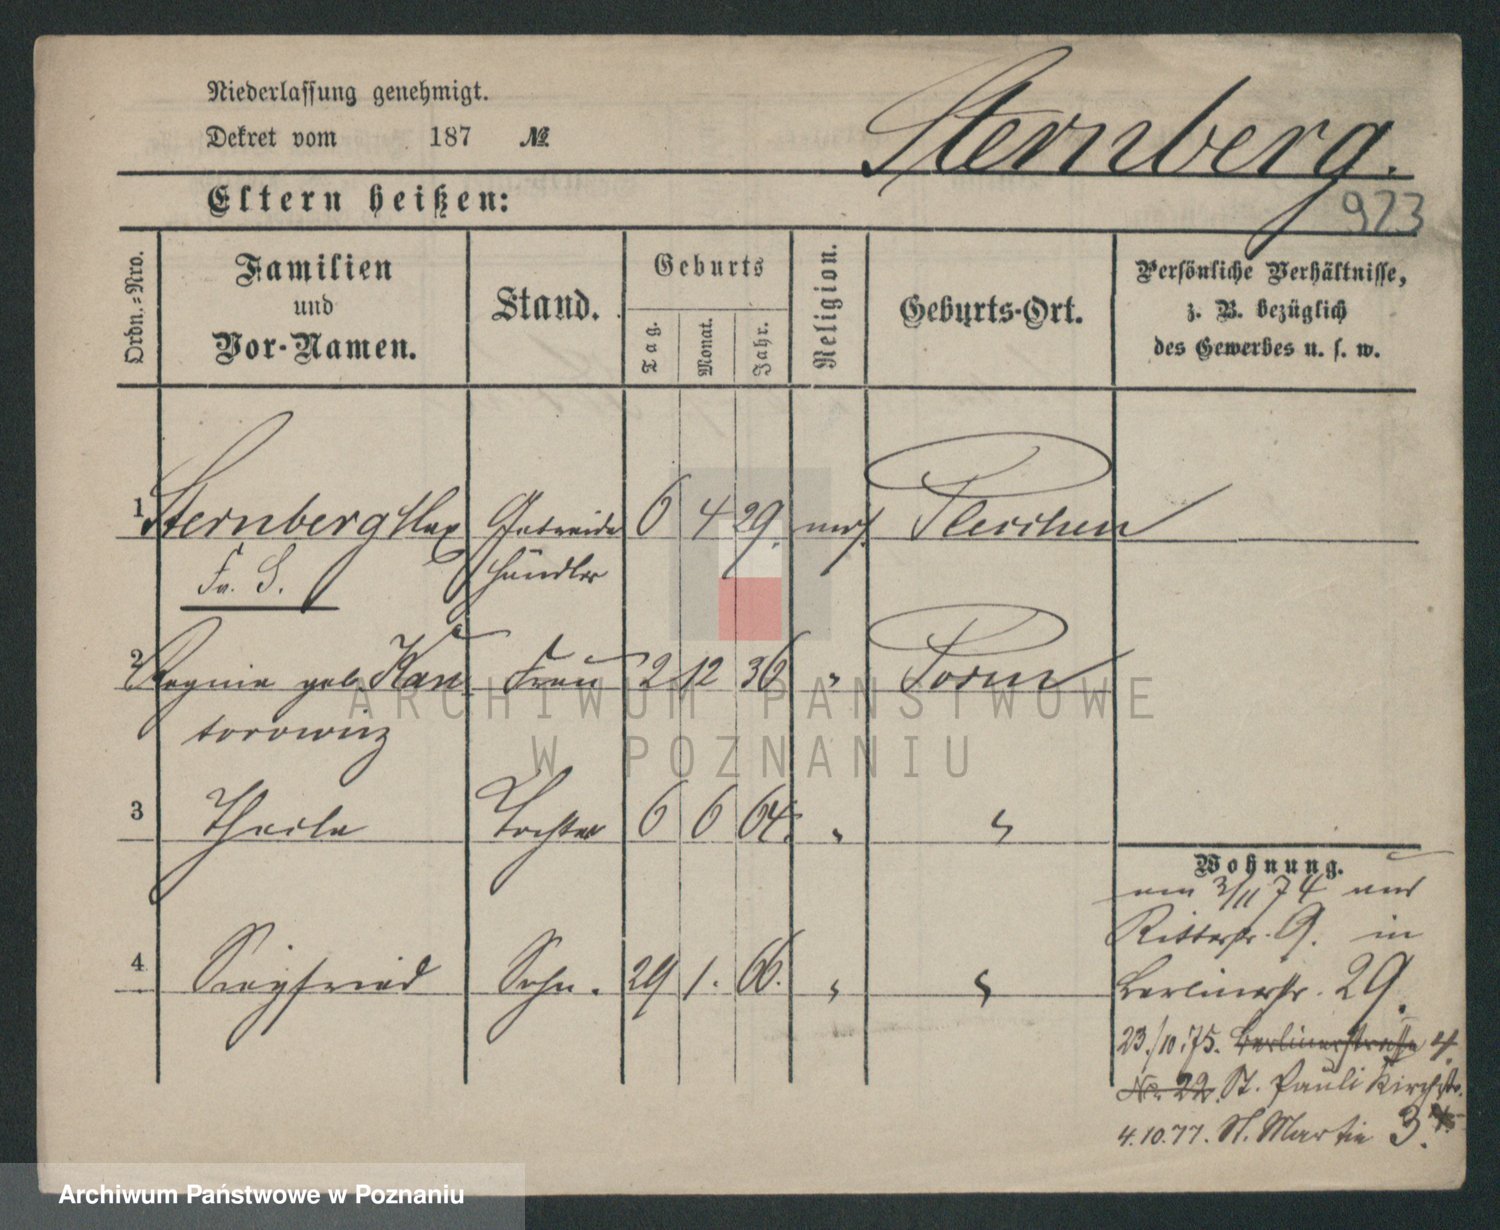 Niederlassung genehmigt.
Dekret vom 187 №
Sternberg.
923
Eltern heißen:
Ordn.-Nro.
Familien
und
Vor-Namen.
Stand.
Geburts
Tag.
Monat.
Jahr.
Religion.
Geburts-Ort.
Persönliche Verhältnisse,
z. B. bezüglich
des Gewerbes u. s. w.
1 Sternberg Max Getreide 6 4 29. mos. Pleschen
händler
2 geb. Kan Frau 2 12 36 "
torowicz
3 Tochter 6 6 64. " "
4 Siegfried Sohn. 29 1. 66. " "
Wohnung.
am 3/11 74 aus
Ritterstr. 9. in
Berlinerstr. 29.
23./10.75. Berlinerstrasse 4.
No. 22. St. Pauli Kirchstr.
4.10.77. St. Martin 3.
ARCHIWUM PAŃSTWOWE
W POZNANIU
Archiwum Państwowe w Poznaniu